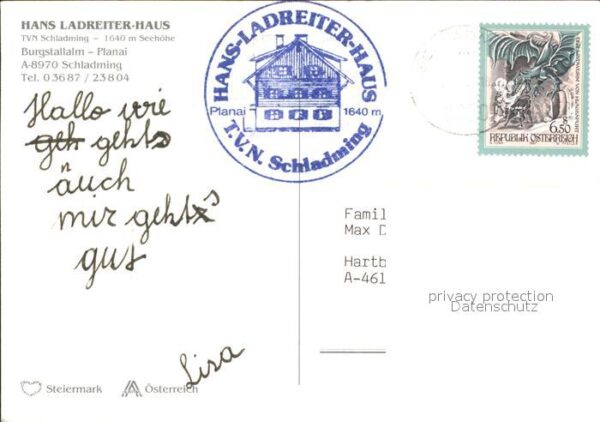 HANS LADREITER-HAUS
TVN Schladming – 1640 m Seehöhe
Burgstallalm – Planai
A-8970 Schladming
Tel. 03687 / 23804
HANS-LADREITER-HAUS
Planai 1640 m
T.V.N. Schladming
6.50
REPUBLIK ÖSTERREICH
Hallo wie
geh gehts
auch
mir gehts
gut
Lisa
Famil
Max D
Hartb
A-461
privacy protection
Datenschutz
Steiermark
Österreich